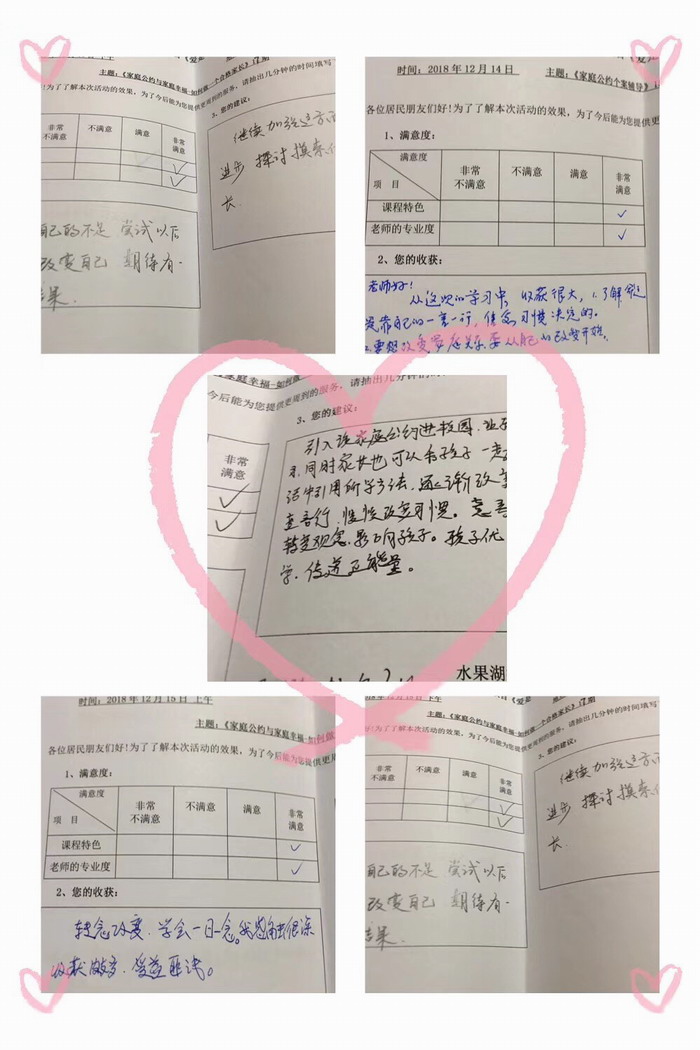 主题:《家庭公约与家庭幸福-如何做一个合格家长》17期
!为了了解本次活动的效果，为了今后能为您提供更周到的服务，请抽出几分钟的时间填写
3、您的建议:
非常
不满意
不满意
满意
非常
满意
继续加强这方面
进步 探讨摸索
长.
自己的不足 尝试以后
改变自己 期待有
结果.
时间：2018年12月14日
主题:《家庭公约个案辅导》
各位居民朋友们好!为了了解本次活动的效果，为了今后能为您提供更
1、满意度：
满意度
项 目
非常
不满意
不满意
满意
非常
满意
课程特色
老师的专业度
2、您的收获：
老师好!
从这次的学习中，收获很大，1.了解命运
是靠自己的一言一行，信念习惯决定的。
2.要想改变家庭关系要从自己的改变开始.
家庭幸福-如何做
今后能为您提供更周到的服务，请抽出几分钟的
3、您的建议:
非常
满意
引入说家庭公约进校园.
同时家长也可以和孩子一起
活中引用所学方法,逐渐改变
言行,慢慢改变习惯。
转变观念,影响孩子。孩子优
学.传递正能量。
水果湖
时间：2018年12月15日上午
主题:《家庭公约与家庭幸福-如何做
各位居民朋友们好!为了了解本次活动的效果，为了今后能为您提供更周
1、满意度：
满意度
项 目
非常
不满意
不满意
满意
非常
满意
课程特色
老师的专业度
2、您的收获：
转念改变.学会一日一念。我感触很深
收获颇多.受益匪浅。
2018年12月15日上午
主题:《家庭公约与家庭幸福-如何做一个合格家长》17期
!为了了解本次活动的效果，为了今后能为您提供更周到的服务，请抽出几分钟的时间填写
3、您的建议:
非常
不满意
不满意
满意
非常
满意
继续加强这方面
进步 探讨摸索
长.
自己的不足 尝试以后
改变自己 期待有
结果.